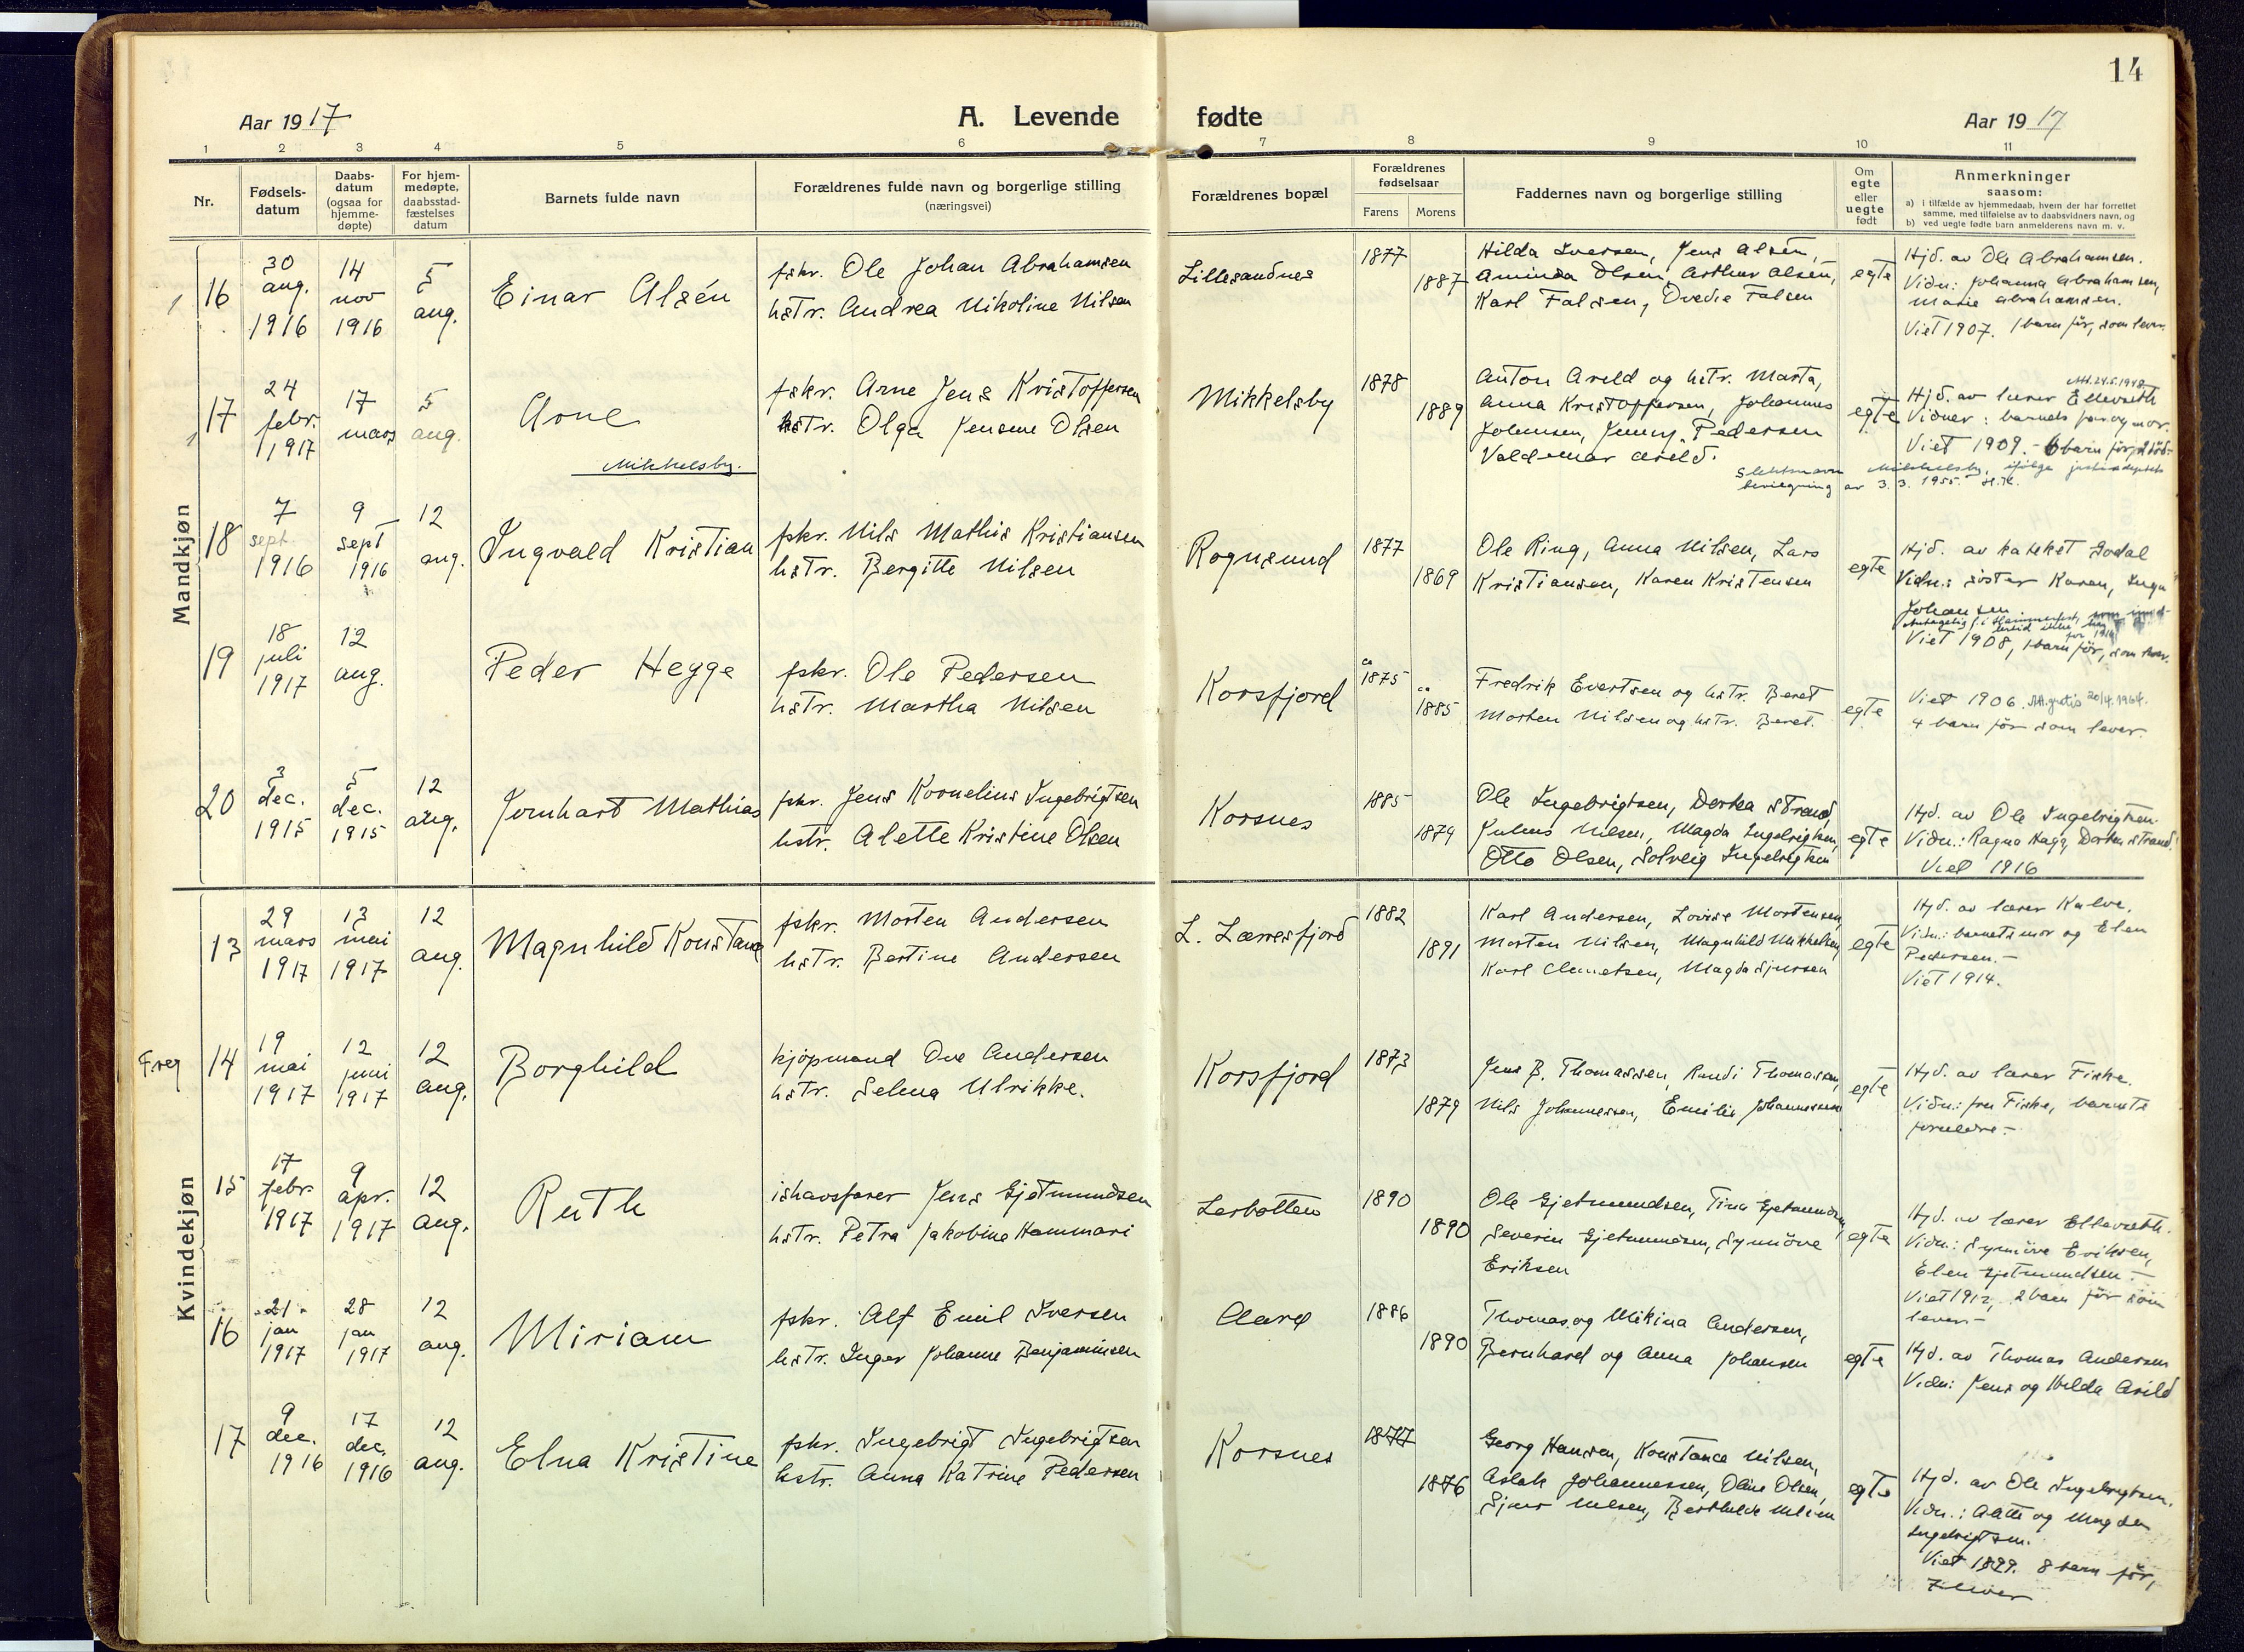 14
Aar 1917
A. Levende
fødte
Aar 1917
1 2 3 4 5 6 7 8 9 10 11
Nr.
Fødsels-
datum
Daabs-
datum
(ogsaa for
hjemme-
døpte)
For hjem-
medøpte,
daabsstad-
fæstelses
datum
Barnets fulde navn
Forældrenes fulde navn og borgerlige stilling
(næringsvei)
Forældrenes bopæl
Forældrenes
fødselsaar
Farens Morens
Faddernes navn og borgerlige stilling
Om
egte
eller
uegte
født
Anmerkninger
saasom:
a) i tilfælde av hjemmedaab, hvem der har forrettet
samme, med tilføielse av to daabsvidners navn, og
b) ved uegte fødte barn anmelderens navn m. v.
Mandkjøn
16
30 aug. 1916
14 nov 1916
5 aug.
Einar Alsén
fskr. Ole Johan Abrahamsen
hstr. Andrea Nikoline Nilsen
Lillesandnes
1877
1887
Hilda Iversen, Jens Alsén,
Aminda Olsen, Arthur Alsén,
Karl Falsen, Ovedie Falsen
egte
Hjd. av Ole Abrahamsen.
Vidn: Johanna Abrahamsen,
Marie Abrahamsen.
Viet 1907. 1 barn før, som lever.
17
24 febr. 1917
17 mars
5 aug.
Arne
Mikkelsby.
fskr. Arne Jens Kristoffersen
hstr. Olga Jensine Olsen
Mikkelsby
1878
1889
Anton Arild og hstr. Marta,
Anna Kristoffersen, Johannes
Johnsen, Jenny Pedersen
Valdemar Arild.
egte
Att. 24.5.1948
Hjd. av lærer Ellevseth
Vidner: barnets far og mor.
Viet 1909. - 6 barn før,
Slektsnavn Mikkelsby, ifølge justisdeptets
bevilgning av 3. 3. 1955.
18
7 sept. 1916
9 sept 1916
12 aug.
Ingvald Kristian
fskr. Nils Mathis Kristiansen
hstr. Bergitte Nilsen
Rognsund
1877
1869
Ole Ring, Anna Nilsen, Lars
Kristiansen, Karen Kristensen
egte
Hjd. av kateket Godal
Vidn.: søster Karen, Inga
Johansen
Viet 1908, 1 barn før, som lever.
19
18 juli 1917
12 aug.
Peder Hegge
fskr. Ole Pedersen
hstr. Martha Nilsen
Korsfjord
ca 1875
ca 1885
Fredrik Evertsen og hstr. Beret
Morten Nilsen og hstr. Beret.
egte
Viet 1906. Att. gratis 20/4. 1964.
4 barn før som lever.
20
3 dec. 1915
5 dec. 1915
12 aug.
Jernhart Mathias
fskr. Jens Kornelius Ingebrigtsen
hstr. Alette Kristine Olsen
Korsnes
1885
1879
Ole Ingebrigtsen, Dortea Strand,
Julius Nilsen, Magda Ingebrigtsen,
Otto Olsen, Solveig Ingebrigtsen
egte
Hjd. av Ole Ingebrigtsen
Vidn.: Ragna Hagg, Dortea Strand.
Viet 1916
Kvindekjøn
13
29 mars 1917
13 mai 1917
12 aug.
Magnhild Konstance
fskr. Morten Andersen
hstr. Bertine Andersen
L. Lærresfjord
1882
1891
Karl Andersen, Lovise Mortensen,
Morten Nilsen, Magnhild Mikkelsen,
Karl Clemetsen, Magda Sjursen
egte
Hjd. av lærer Kalve.
Vidn: barnets mor og Elen
Pedersen.-
Viet 1914.
Freg
14
19 mai 1917
12 juni 1917
12 aug.
Borghild
kjøpmand Ove Andersen
hstr. Selma Ulrikke.
Korsfjord
1873
1879
Jens B. Thomassen, Randi Thomassen,
Nils Johannessen, Emilie Johannessen
egte
Hjd. av lærer Fiske.
Vidn: fru Fiske, barnets
foreldre-
15
17 febr. 1917
9 apr. 1917
12 aug.
Ruth
ishavsfarer Jens Gjetmundsen
hstr. Petra Jakobine Hammari
Lerbotten
1890
1890
Ole Gjetmundsen, Tina Gjetmundsen,
Severin Gjetmundsen, Synnöve
Eriksen
egte
Hjd. av lærer Ellevseth.
Vidn.: Synnöve Eriksen,
Elen Gjetmundsen.-
Viet 1912, 2 barn før som
lever.-
16
21 jan 1917
28 jan 1917
12 aug.
Miriam
fskr. Alf Emil Iversen
hstr. Inger Johanne Benjaminsen
Aarø
1886
1890
Thomas og Mikina Andersen,
Bernhard og Anna Johansen
egte
Hjd. av Thomas Andersen
Vidn: Jens og Hilda Arild
17
9 dec. 1916
17 dec. 1916
12 aug.
Elna Kristine
fskr. Ingebrigt Ingebrigtsen
hstr. Anna Katrine Pedersen
Korsnes
1877
1876
Georg Hansen, Konstance Nilsen,
Aslak Johannessen, Oline Olsen,
Sjur Nilsen, Berthilde Nilsen
egte
Hjd. av Ole Ingebrigtsen.
Vidn.: Alette og Magda
Ingebrigtsen.
Viet 1899. 8 barn før,
7 lever